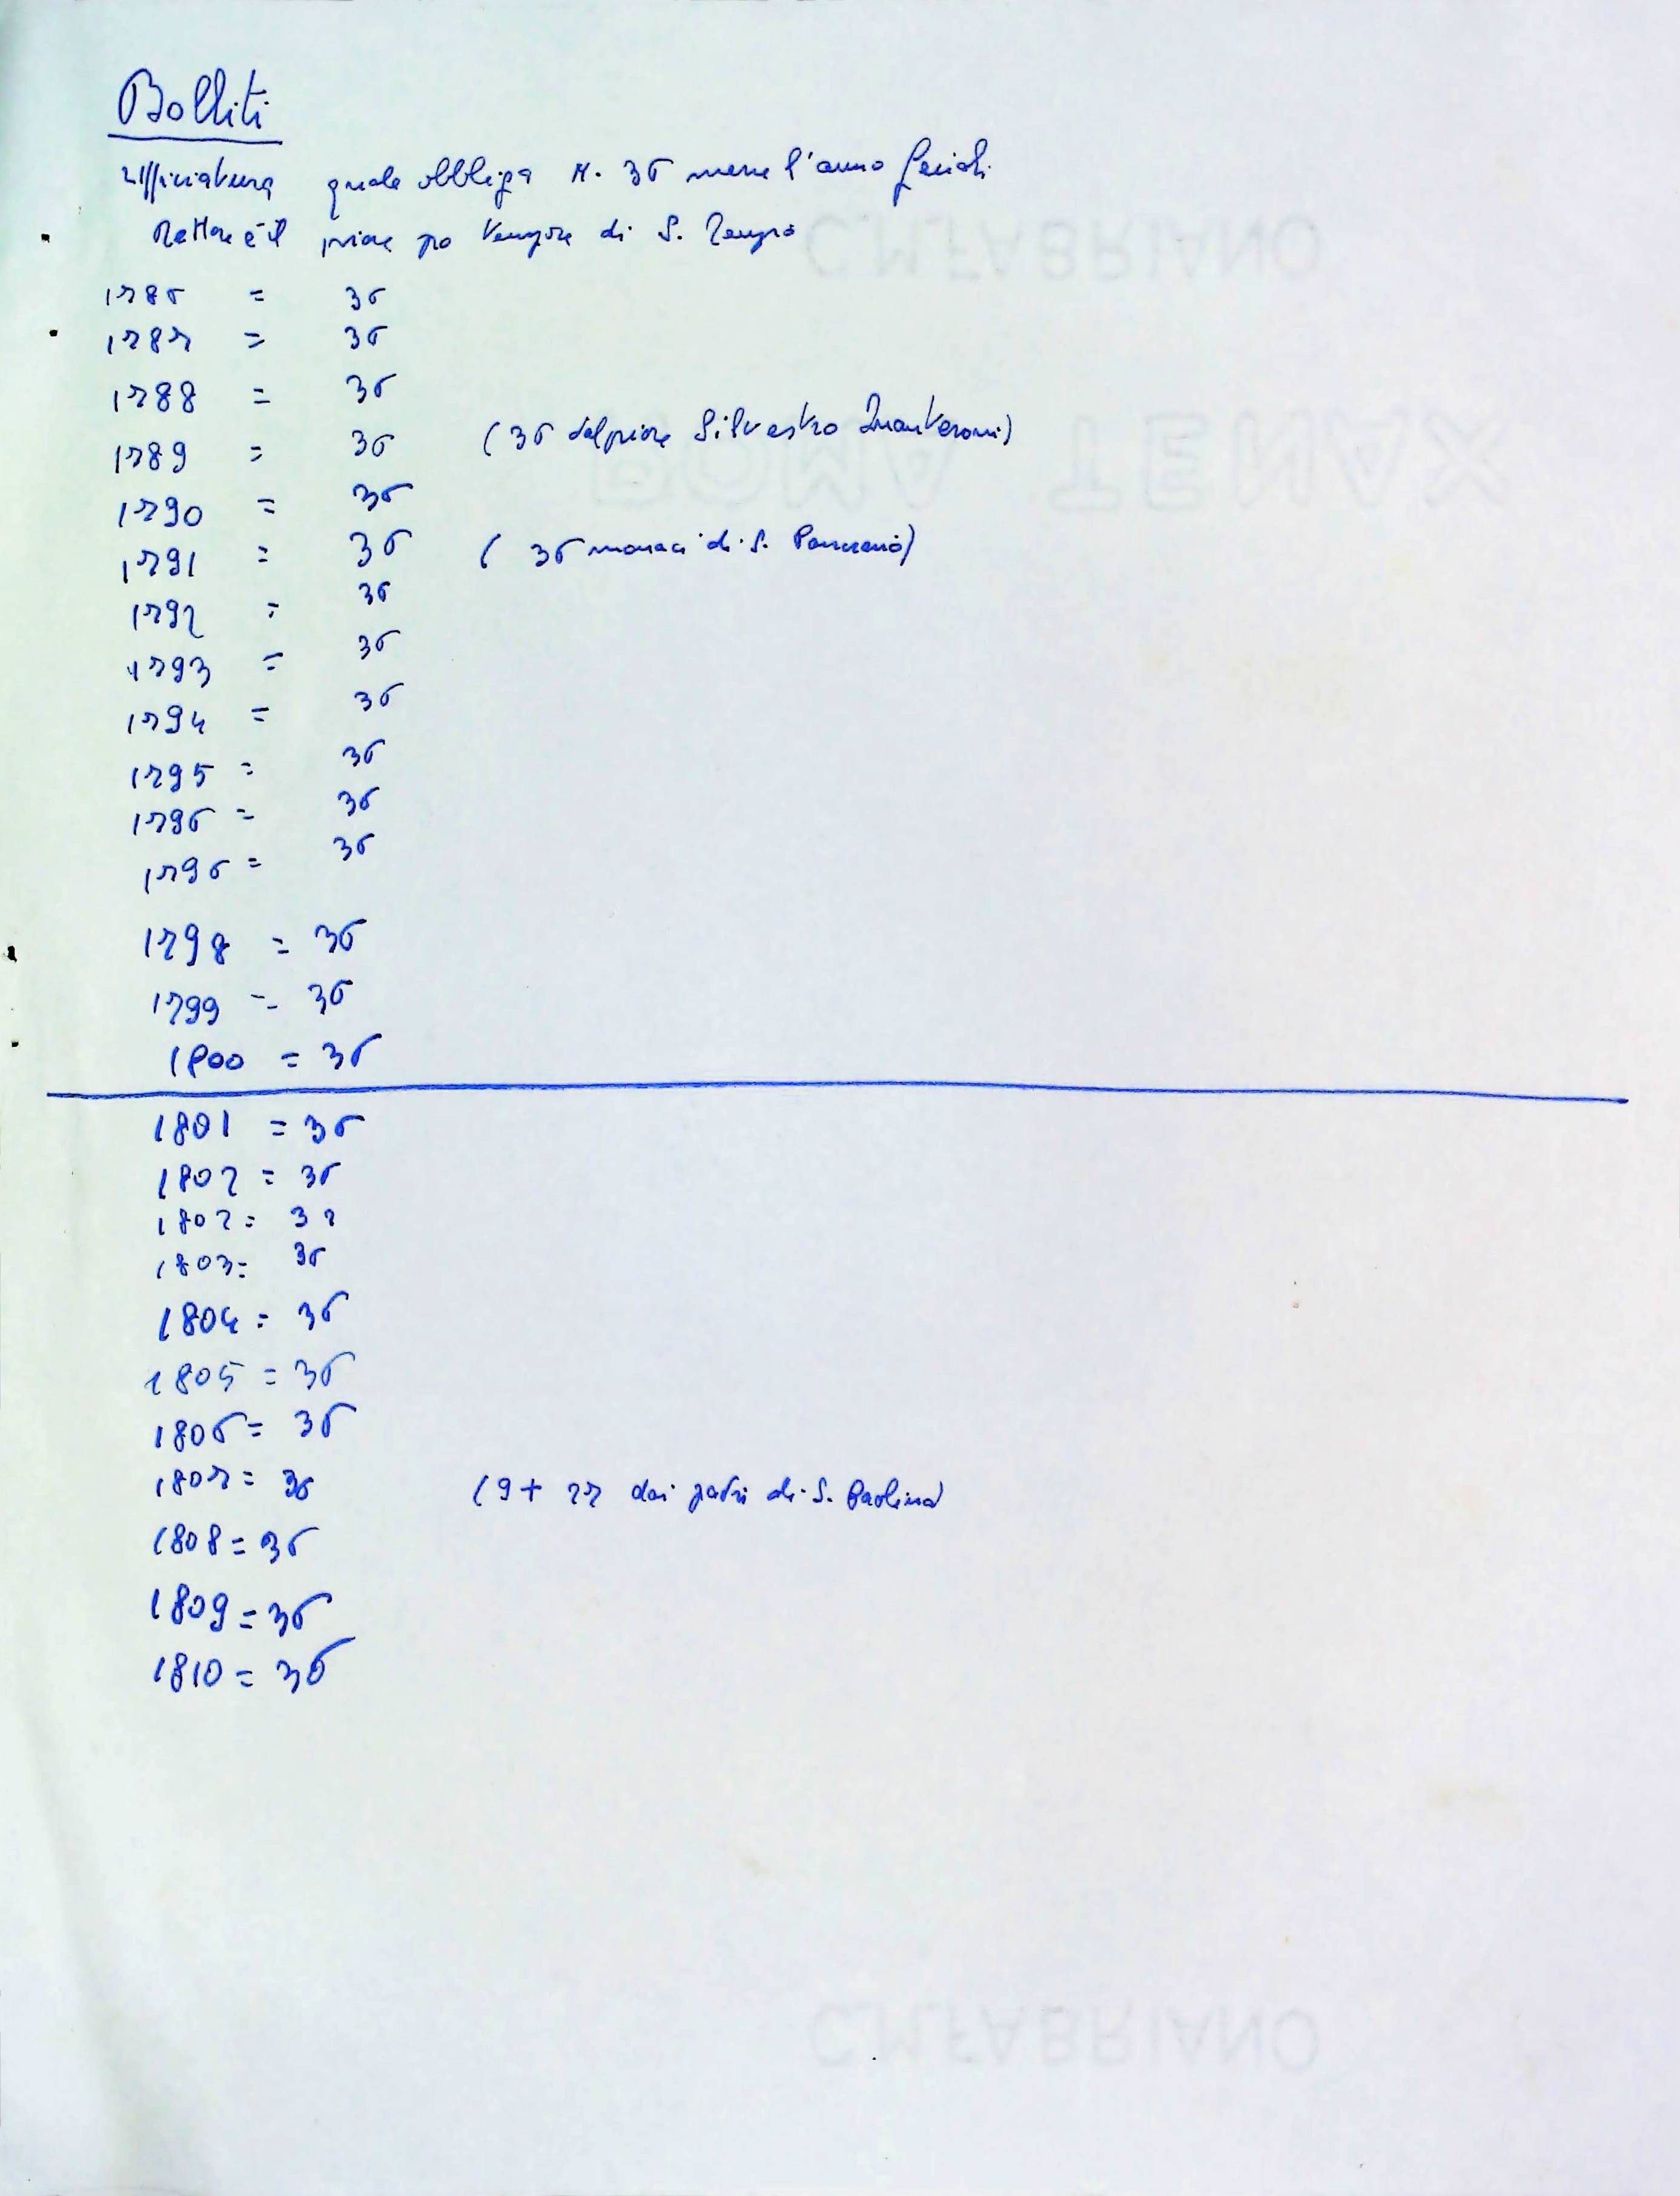 Bolliti
Uffiniatura quale obbliga N. 36 messe l'anno feriali
Rettore è il priore pro tempore di S.
1786 = 36
1787 = 36
1788 = 36
1789 = 36 (36 dal priore Silvestro)
1790 = 36
1791 = 36 (36 monaci di S. Ponziano)
1792 = 36
1793 = 36
1794 = 36
1795 = 36
1796 = 36
1796 = 36
1798 = 36
1799 = 36
1800 = 36
1801 = 36
1802 = 36
1802 = 32
1803 = 36
1804 = 36
1805 = 36
1806 = 36
1807 = 36 (9 + 27 dai padri di S. Paolino)
1808 = 36
1809 = 36
1810 = 36
C.M.FABRIANO
ROMA TENAX
C.M.FABRIANO